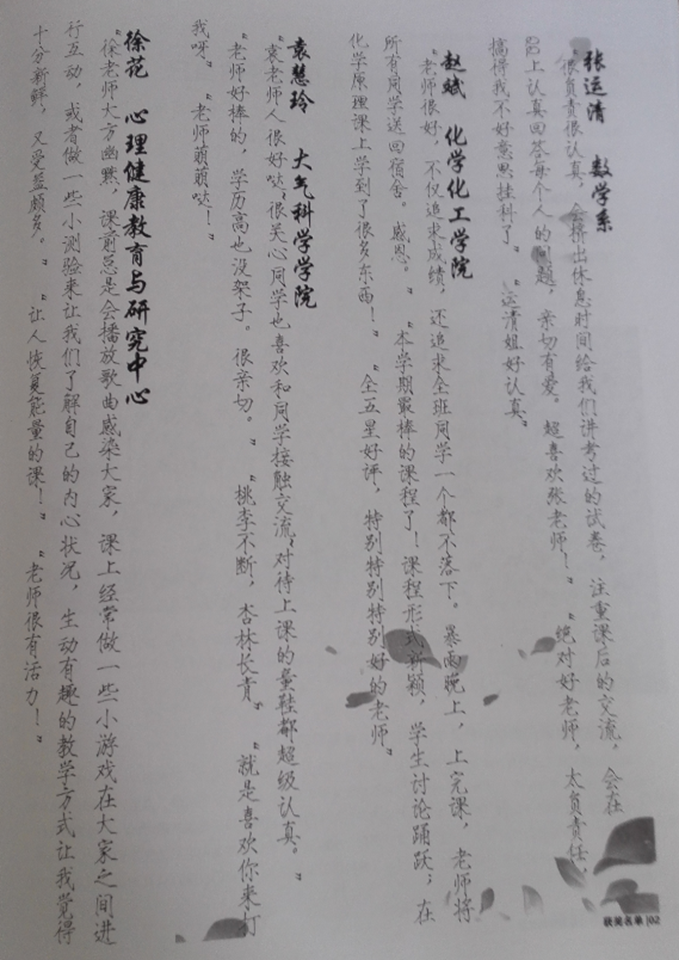 张运清 数学系
“很负责很认真，会挤出休息时间给我们讲考过的试卷，注重课后的交流，会在
QQ上认真回答每个人的问题，亲切有爱。超喜欢张老师！”“绝对好老师，太负责任，
搞得我不好意思挂科了”“运清姐好认真”
赵斌 化学化工学院
“老师很好，不仅追求成绩，还追求全班同学一个都不落下。暴雨晚上，上完课，老师将
所有同学送回宿舍。感恩。”“本学期最棒的课程了！课程形式新颖，学生讨论踊跃；在
化学原理课上学到了很多东西！”“全五星好评，特别特别特别好的老师”
袁慧玲 大气科学学院
“袁老师人很好哒，很关心同学也喜欢和同学接触交流，对待上课的童鞋都超级认真。”
“老师好棒的，学历高也没架子。很亲切。”“桃李不断，杏林长青”“就是喜欢你来打
我呀。”“老师萌萌哒！”
徐花 心理健康教育与研究中心
“徐老师大方幽默，课前总是会播放歌曲感染大家，课上经常做一些小游戏在大家之间进
行互动，或者做一些小测验来让我们了解自己的内心状况，生动有趣的教学方式让我觉得
十分新鲜，又受益颇多。”“让人恢复能量的课！”“老师很有活力！”
获奖名单|02